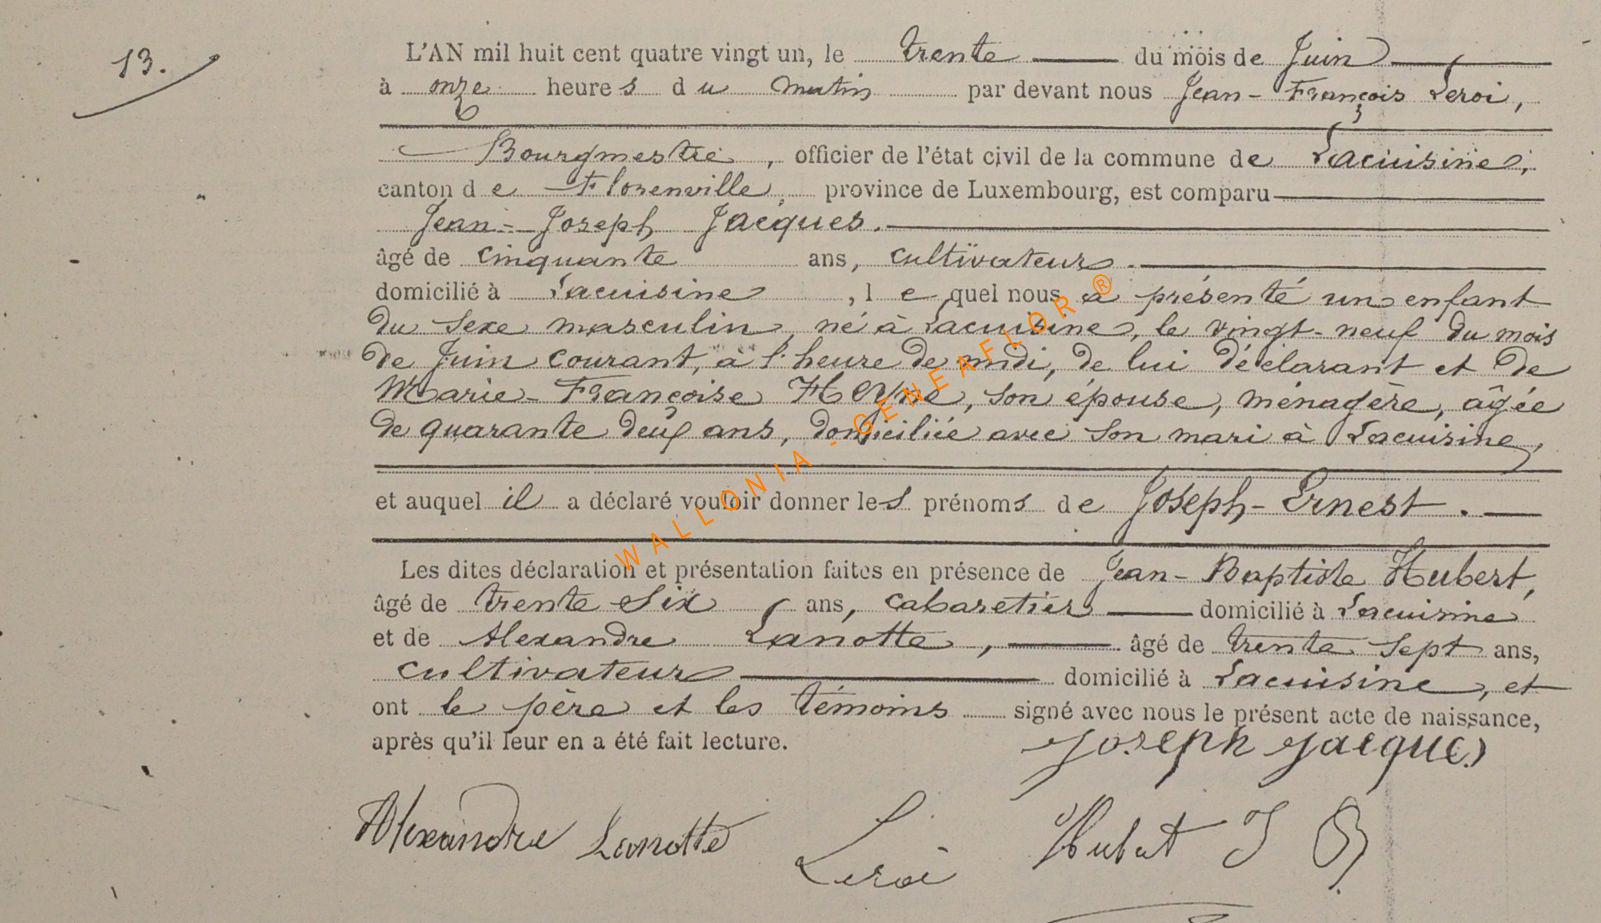 13.
L'AN mil huit cent quatre vingt un, le trente du mois de Juin
à onze heures du matin par devant nous Jean-François Leroi,
Bourgmestre, officier de l'état civil de la commune de Lacuisine,
canton de Florenville, province de Luxembourg, est comparu
Jean-Joseph Jacques.
âgé de cinquante ans, cultivateur.
domicilié à Lacuisine, lequel nous a présenté un enfant
du sexe masculin, né à Lacuisine, le vingt-neuf du mois
de Juin courant, à l'heure de midi, de lui déclarant et de
Marie-Françoise Heyne, son épouse, ménagère, âgée
de quarante deux ans, domiciliée avec son mari à Lacuisine,
et auquel il a déclaré vouloir donner les prénoms de Joseph-Ernest.
Les dites déclaration et présentation faites en présence de Jean-Baptiste Hubert,
âgé de trente six ans, cabaretier domicilié à Lacuisine
et de Alexandre Lanotte, âgé de trente sept ans,
cultivateur domicilié à Lacuisine, et
ont le père et les témoins signé avec nous le présent acte de naissance,
après qu'il leur en a été fait lecture.
Joseph Jacques
Alexandre Lanotte Leroi Hubert J B
WALLONIA - GENEAFLOR ®